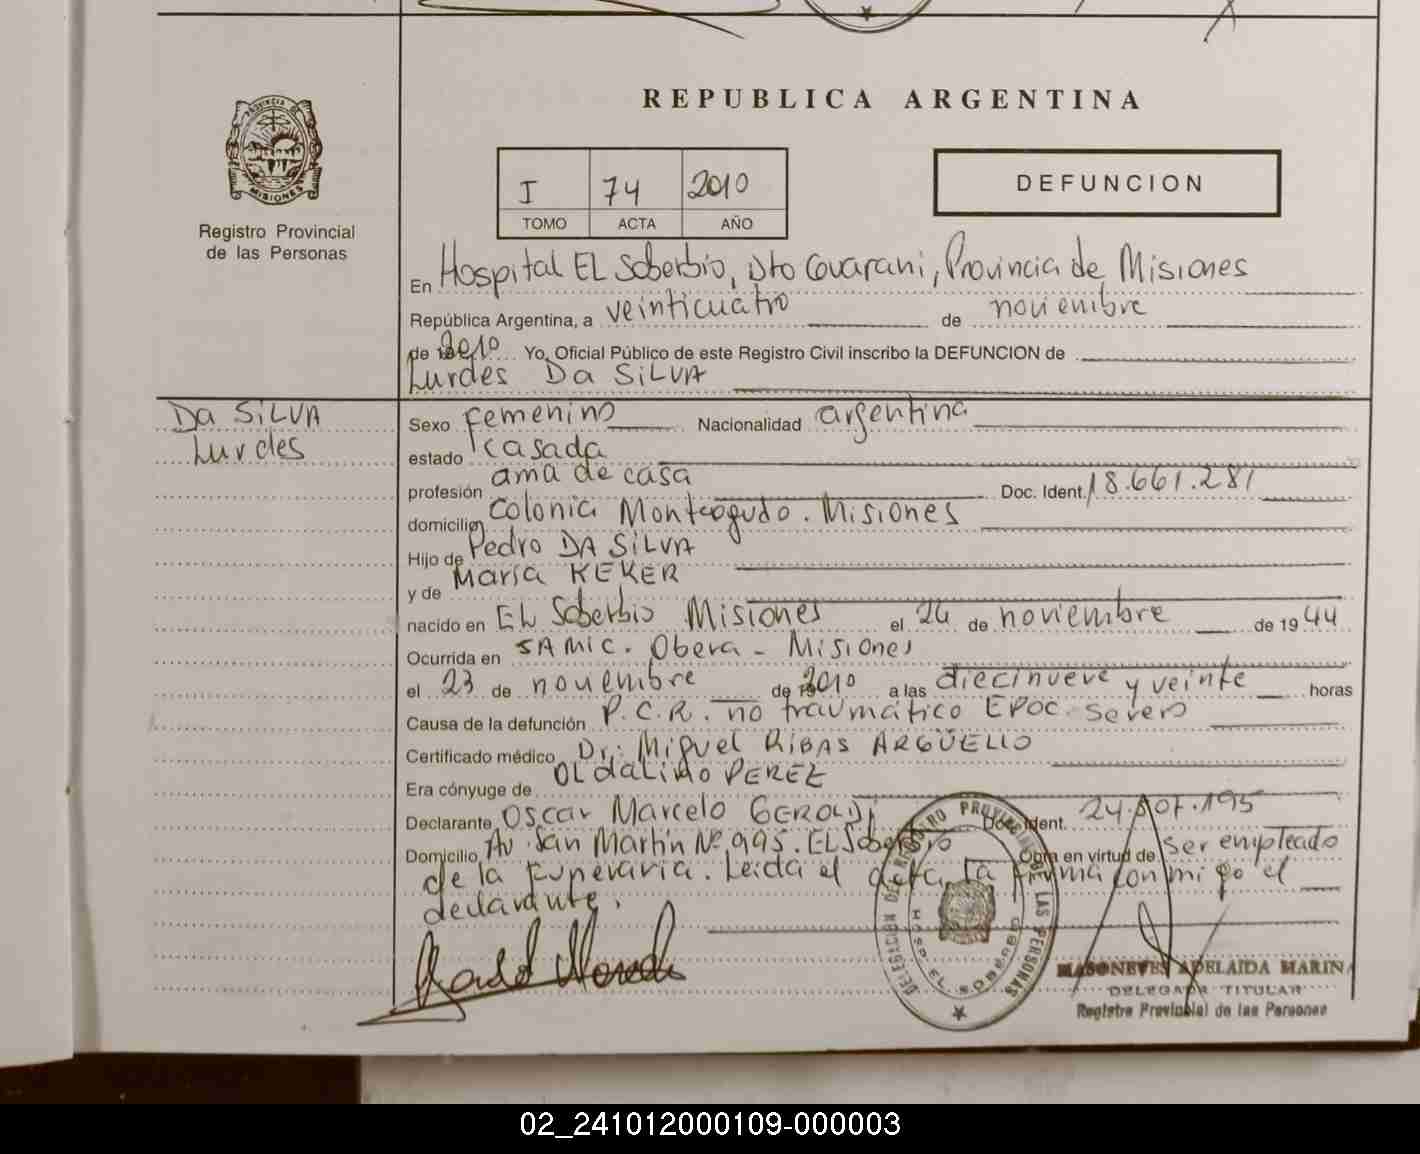 REPUBLICA ARGENTINA
PROVINCIA DE MISIONES
Registro Provincial
de las Personas
I 74 2010
TOMO ACTA AÑO
DEFUNCION
En Hospital EL Soberbio, Dto Guarani, Provincia de Misiones
República Argentina, a veinticuatro de noviembre
de 2010 Yo, Oficial Público de este Registro Civil inscribo la DEFUNCION de
Lurdes Da SILVA
Da SILVA
Lurdes
Sexo femenino Nacionalidad argentina
estado casada
profesión ama de casa Doc. Ident. 18.661.281
domicilio Colonia Monteagudo. Misiones
Hijo de Pedro DA SILVA
y de María KEKER
nacido en EL Soberbio Misiones el 24 de noviembre de 1944
Ocurrida en SAMIC. Obera - Misiones
el 23 de noviembre de 2010 a las diecinueve y veinte horas
Causa de la defunción P.C.R. no traumático EPOC severo
Certificado médico Dr: Miguel RIBAS ARGÜELLO
Era cónyuge de OLdalino PEREZ
Declarante Oscar Marcelo GEROLDI Doc. Ident. 24.507.195
Domicilio Av. San Martín Nº 995. EL Soberbio Obra en virtud de ser empleado
de la funeraria. Leida el acta la firma conmigo el
declarante.
DELEGACION DE REGISTRO PROVINCIAL DE LAS PERSONAS
HOSP. EL SOBERBIO
MASONEVES ADELAIDA MARINA
DELEGADA TITULAR
Registro Provincial de las Personas
02_241012000109-000003